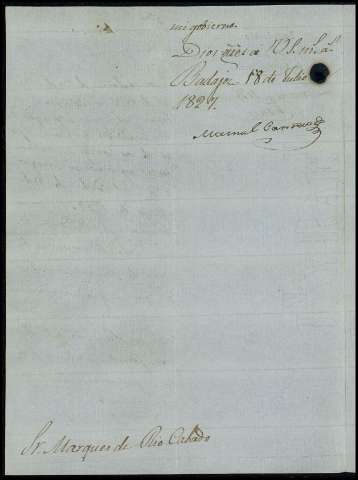 mi gobierno.
Dios güe a V.S. m.s a.s
Badajoz 18 de Julio
1827.
Manuel
Sr. Marques de Rio Cabado